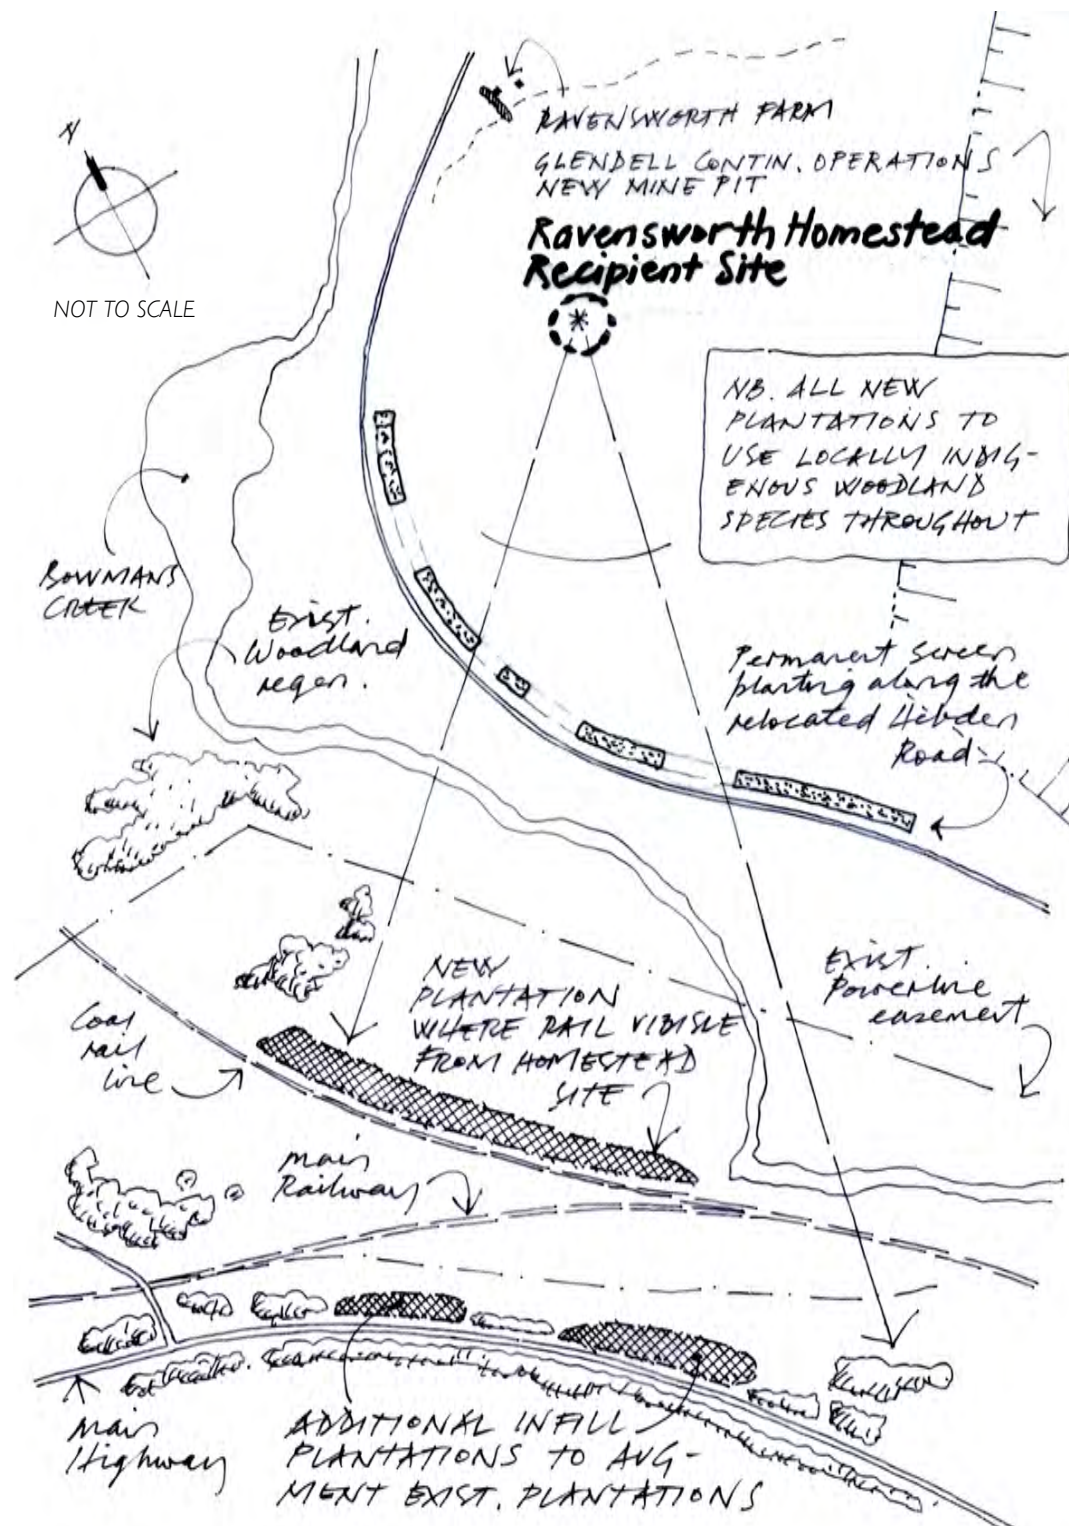 N
NOT TO SCALE
RAVENSWORTH FARM
GLENDELL CONTIN. OPERATIONS
NEW MINE PIT
Ravensworth Homestead
Recipient Site
NB. ALL NEW
PLANTATIONS TO
USE LOCALLY INDIG-
ENOUS WOODLAND
SPECIES THROUGHOUT
BOWMANS
CREEK
Exist.
Woodland
regen.
Permanent screen
planting along the
relocated Hebden
Road
NEW
PLANTATION
WHERE RAIL VIBISLE
FROM HOMESTEAD
SITE
EXIST.
Powerline
easement
Coal
rail
line
main
Railway
Main
Highway
ADDITIONAL INFILL
PLANTATIONS TO AUG-
MENT EXIST. PLANTATIONS